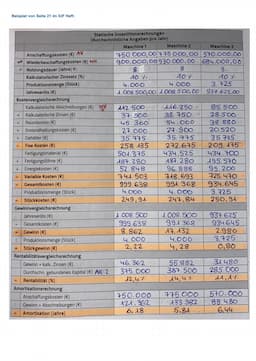 Beispiel von Seite 21 im SIP Heft
Statische Investitionsrechnungen
(durchschnittliche Angaben pro Jahr)
Maschine 1 Maschine 2 Maschine 3
Anschaffungskosten (€) 750.000,00 775.000,00 570.000,00
Wiederbeschaffungskosten (€) 900.000,00 930.000,00 684.000,00
Nutzungsdauer (Jahre) 8 8 8
Kalkulatorischer Zinssatz (%) 10 % 10 % 10 %
Produktionsmenge (Stück) 4.000 4.000 3.725
Jahreserlös (€) 1.008.500,00 1.008.500,00
Kostenvergleichsrechnung
Kalkulatorische Abschreibungen (€) 112.500 116.250 85.500
Kalkulatorische Zinsen (€) 37.500 38.750 28.500
Raumkosten (€) 45.360 54.000
Instandhaltungskosten (€) 27.000 27.900 20.520
Gehälter (€) 35.775 35.775 35.775
Fixe Kosten (€) 258.135 272.675 209.175
Fertigungslöhne (€) 501.375 434.525 434.700
Fertigungsmaterial (€) 187.280 187.280 195.570
Energiekosten (€) 52.848 96.888 95.200
Variable Kosten (€) 741.503 718.693 725.470
Gesamtkosten (€) 999.638 991.368 934.645
Produktionsmenge (Stück) 4.000 4.000 3.725
Stückkosten (€) 249,91 247,84 250,91
Gewinnvergleichsrechnung
Jahreserlös (€) 1.008.500 1.008.500 937.625
Gesamtkosten (€) 999.638 991.368 934.645
Gewinn (€) 8.862 17.132 2.980
Produktionsmenge (Stück) 4.000 4.000 3.725
Stückgewinn (€) 2,22 4,28 0,80
Rentabilitätsvergleichsrechnung
Gewinn + kalk. Zinsen (€) 46.362 55.882 31.480
Durchschn. gebundenes Kapital (€) 375.000 387.500 285.000
Rentabilität (%) 12,4% 14,4% 11,1%
Amortisationsrechnung
Anschaffungskosten (€) 750.000 775.000 570.000
Gewinn + Abschreibungen (€) 121.362 133.382 88.480
Amortisation (Jahre) 6,18 5,81 6,44